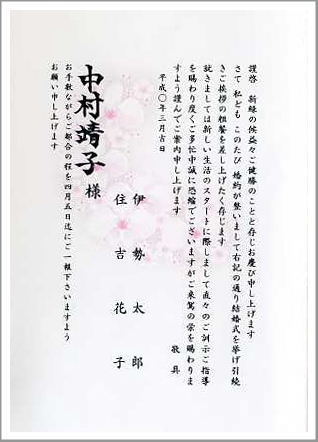 謹啓　新緑の候益々ご健勝のことと存じお慶び申し上げます
さて 私ども このたび 婚約が整いまして右記の通り結婚式を挙げ引続
きご挨拶の粗餐を差し上げたく存じます
就きましては新しい生活のスタートに際しまして直々のご訓示ご指導
を賜わり度くご多忙中誠に恐縮でございますがご来駕の栄を賜わりま
すよう謹んでご案内申し上げます
敬具
平成〇年三月吉日
伊勢太郎
住吉花子
中村靖子 様
お手数ながらご都合の程を四月五日迄にご一報下さいますよう
お願い申し上げます